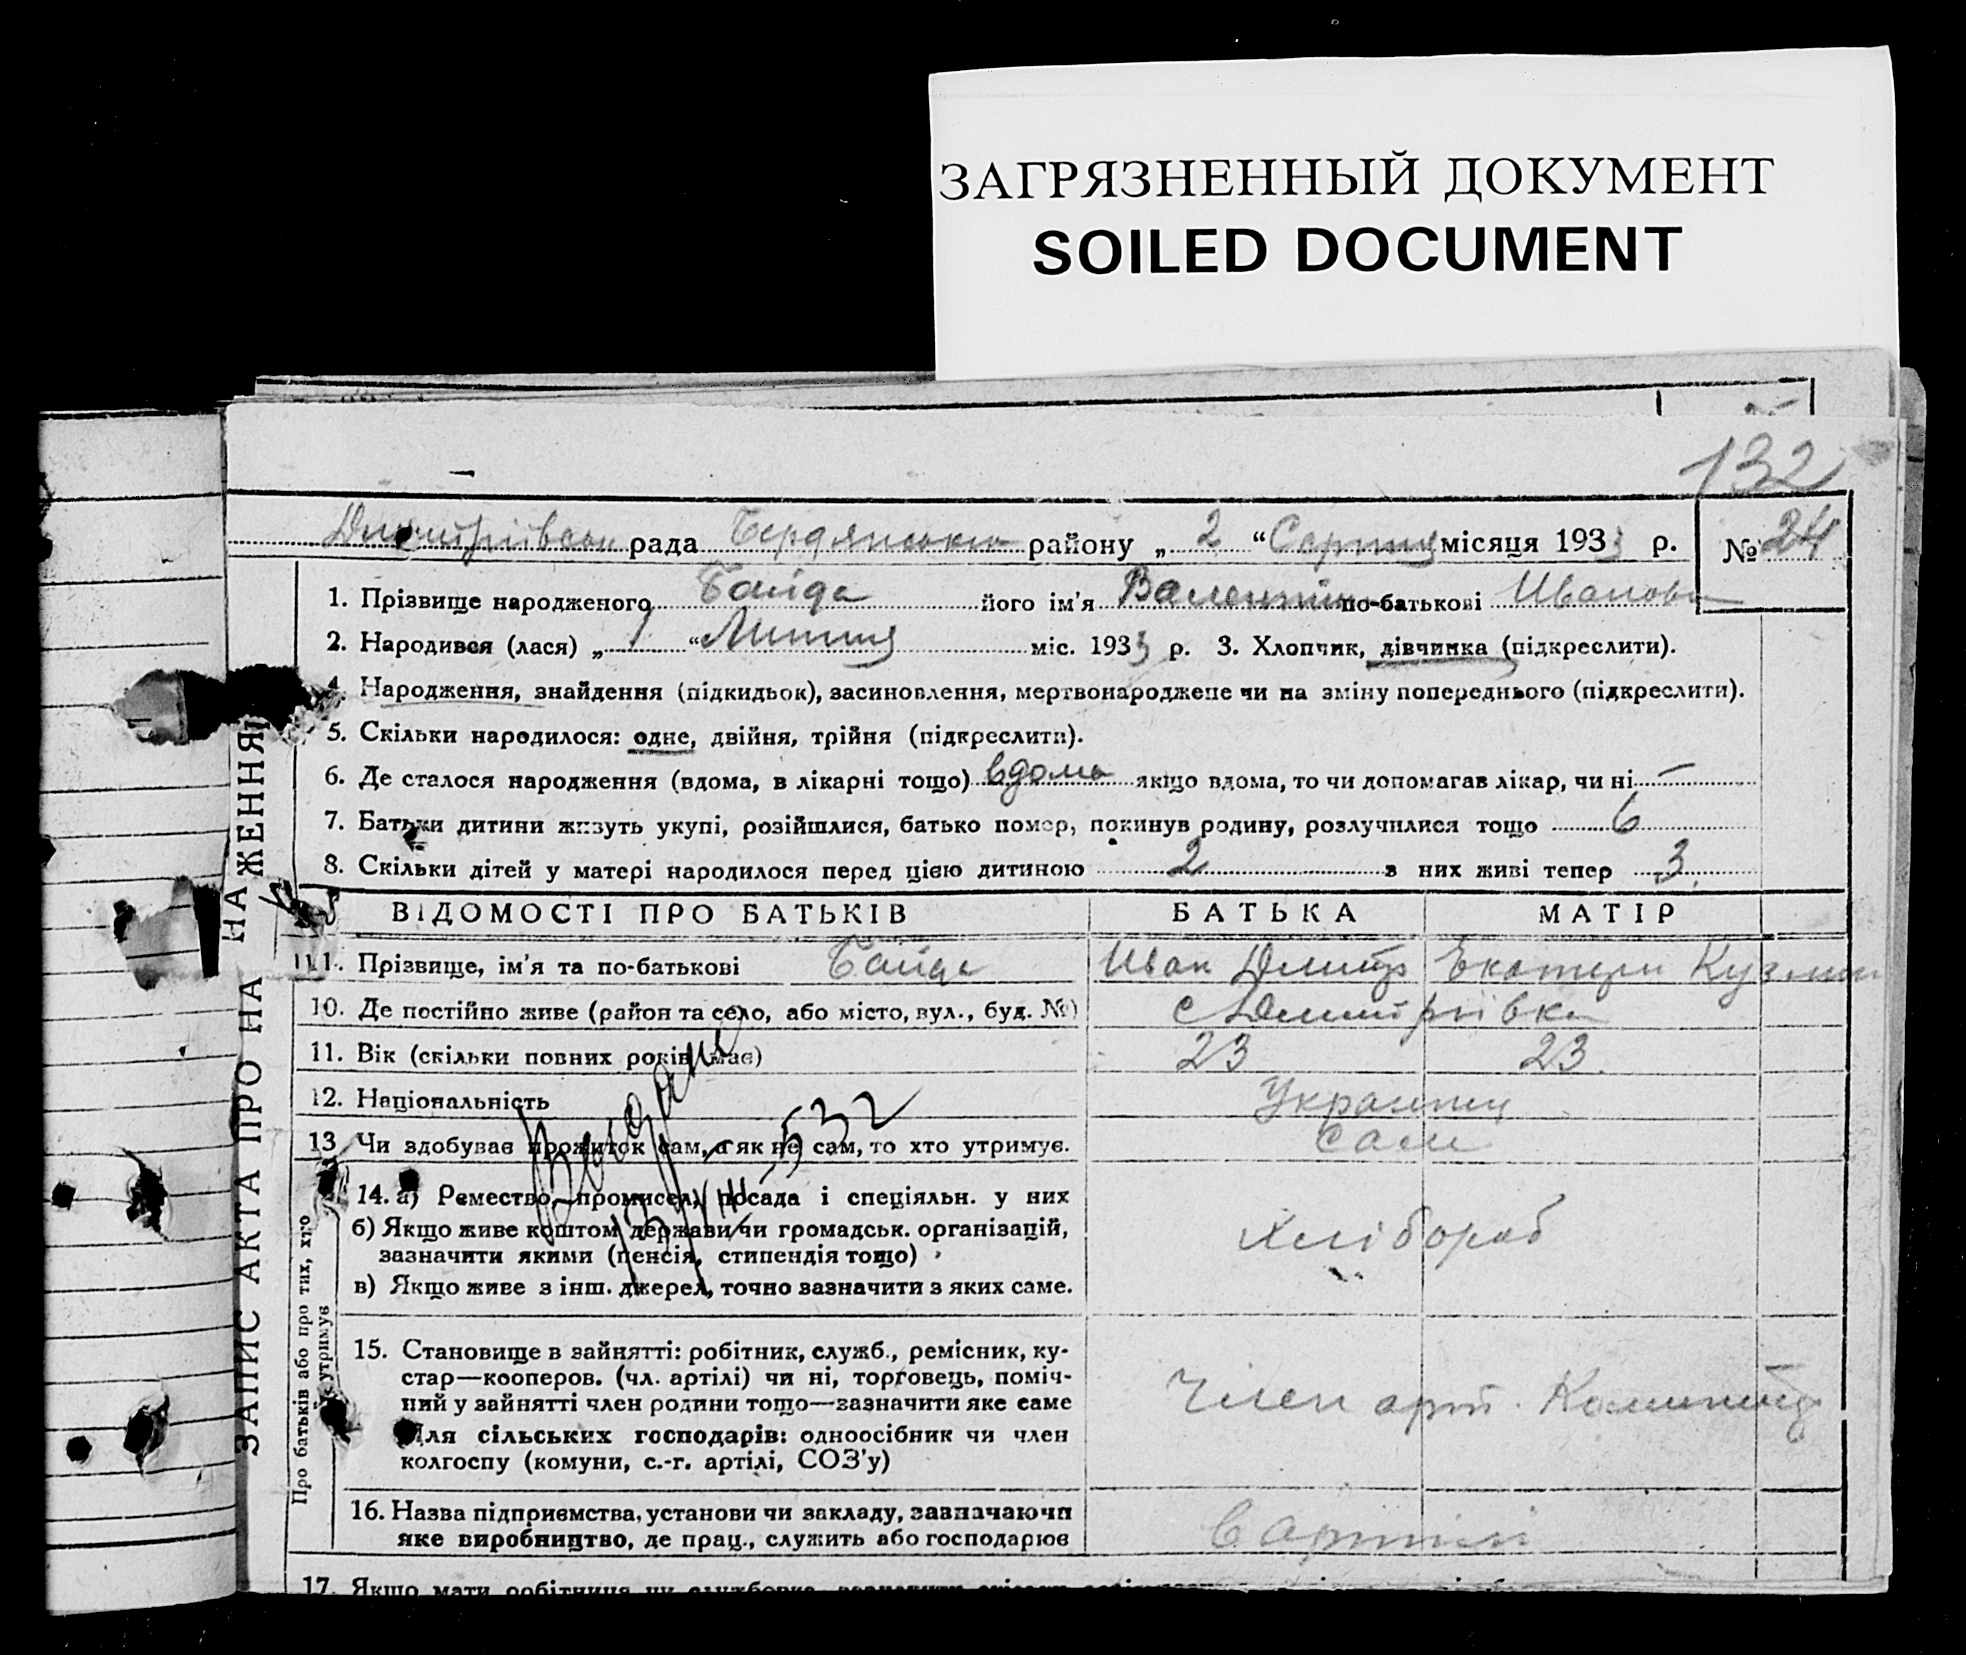 ЗАГРЯЗНЕННЫЙ ДОКУМЕНТ
SOILED DOCUMENT
132
рада района „ 2 “ Серпня місяця 1933 р. № 24
1. Прізвище народженого Байда його ім'я Валентин по-батькові Иванови
2. Народився (лася) „ 1 “ Липня міс. 1933 р. 3. Хлопчик, дівчинка (підкреслити).
4. Народження, знайдення (підкидьок), засиновлення, мертвонароджене чи на зміну попереднього (підкреслити).
5. Скільки народилося: одне, двійня, трійня (підкреслити).
6. Де сталося народження (вдома, в лікарні тощо) вдома якщо вдома, то чи допомагав лікар, чи ні —
7. Батьки дитини живуть укупі, розійшлися, батько помер, покинув родину, розлучилися тощо
8. Скільки дітей у матері народилося перед цією дитиною 2 з них живі тепер 3
ВІДОМОСТІ ПРО БАТЬКІВ БАТЬКА МАТІР
Прізвище, ім'я та по-батькові Байда Иван Дмитр Екатерин Кузмин
10. Де постійно живе (район та село, або місто, вул., буд. №) с Дмитрівка
11. Вік (скільки повних років має) 23 23
12. Національність Украинц
13 Чи здобуває прожиток сам, а як не сам, то хто утримує. сам
14. а) Ремество—промисел, посада і спеціяльн. у них
б) Якщо живе коштом держави чи громадськ. організацій,
зазначити якими (пенсія, стипендія тощо)
в) Якщо живе з інш. джерел, точно зазначити з яких саме.
хлібороб
15. Становище в зайнятті: робітник, служб., ремісник, ку-
стар—кооперов. (чл. артілі) чи ні, торговець, поміч-
ний у зайнятті член родини тощо—зазначити яке саме
Для сільських господарів: одноосібник чи член
колгоспу (комуни, с.-г. артілі, СОЗ'у)
Член арт.
16. Назва підприємства, установи чи закладу, зазначаючи
яке виробництво, де прац., служить або господарює
в артілі
17. Якщо мати робітниця чи службовка,
ЗАПИС АКТА ПРО НАРОДЖЕННЯ
Про батьків або про тих, хто
утримує